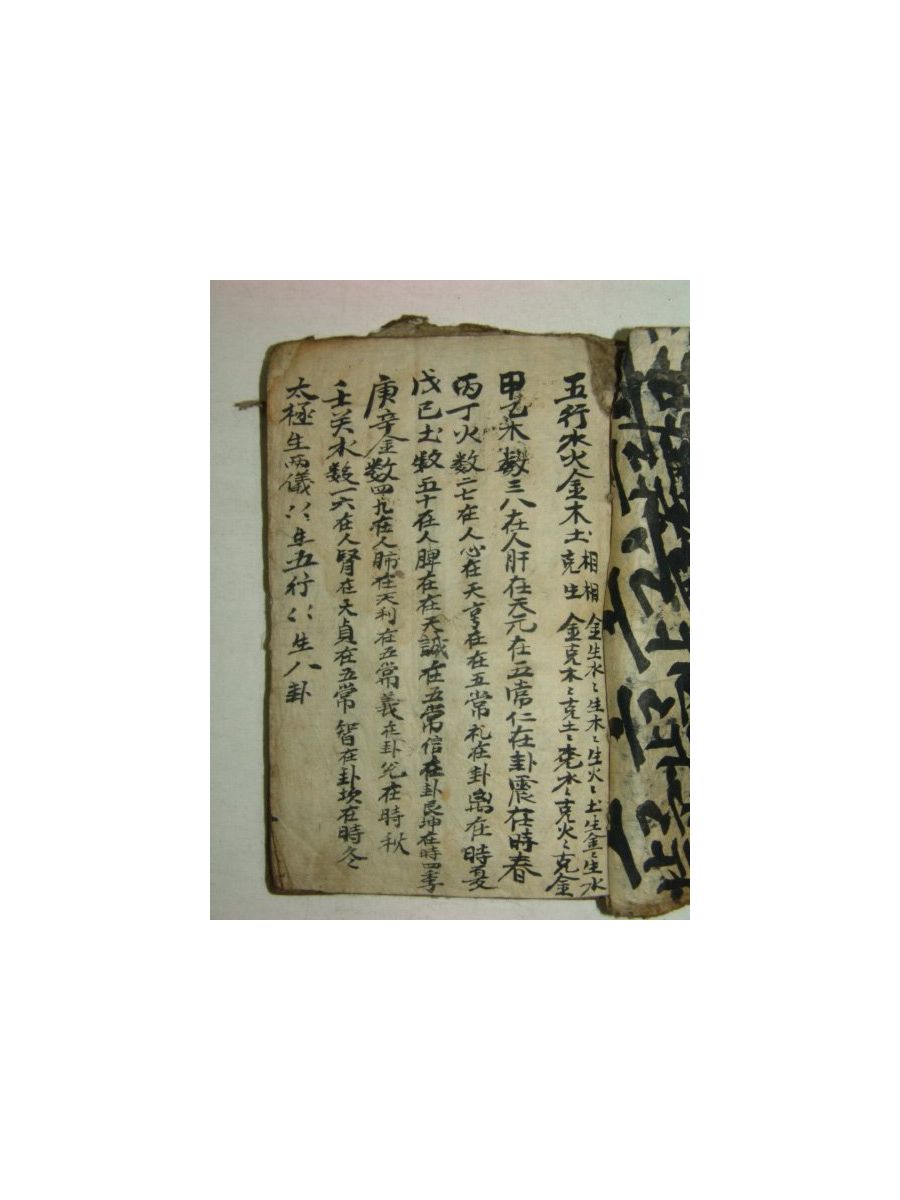 五行水火金木土 相生 金生水〻生木〻生火〻土生金〻生水
相克 金克木〻克土〻克水〻克火〻克金
甲乙木数三八在人肝在天元在五常仁在卦震在時春
丙丁火数二七在人心在天亨在在五常礼在卦离在時夏
戊己土数五十在人脾在在天誠在五常信在卦艮坤在時四季
庚辛金数四九在人肺在天利在五常義在卦兌在時秋
壬癸水数一六在人腎在天貞在五常智在卦坎在時冬
太極生两儀〻〻生五行〻〻生八卦